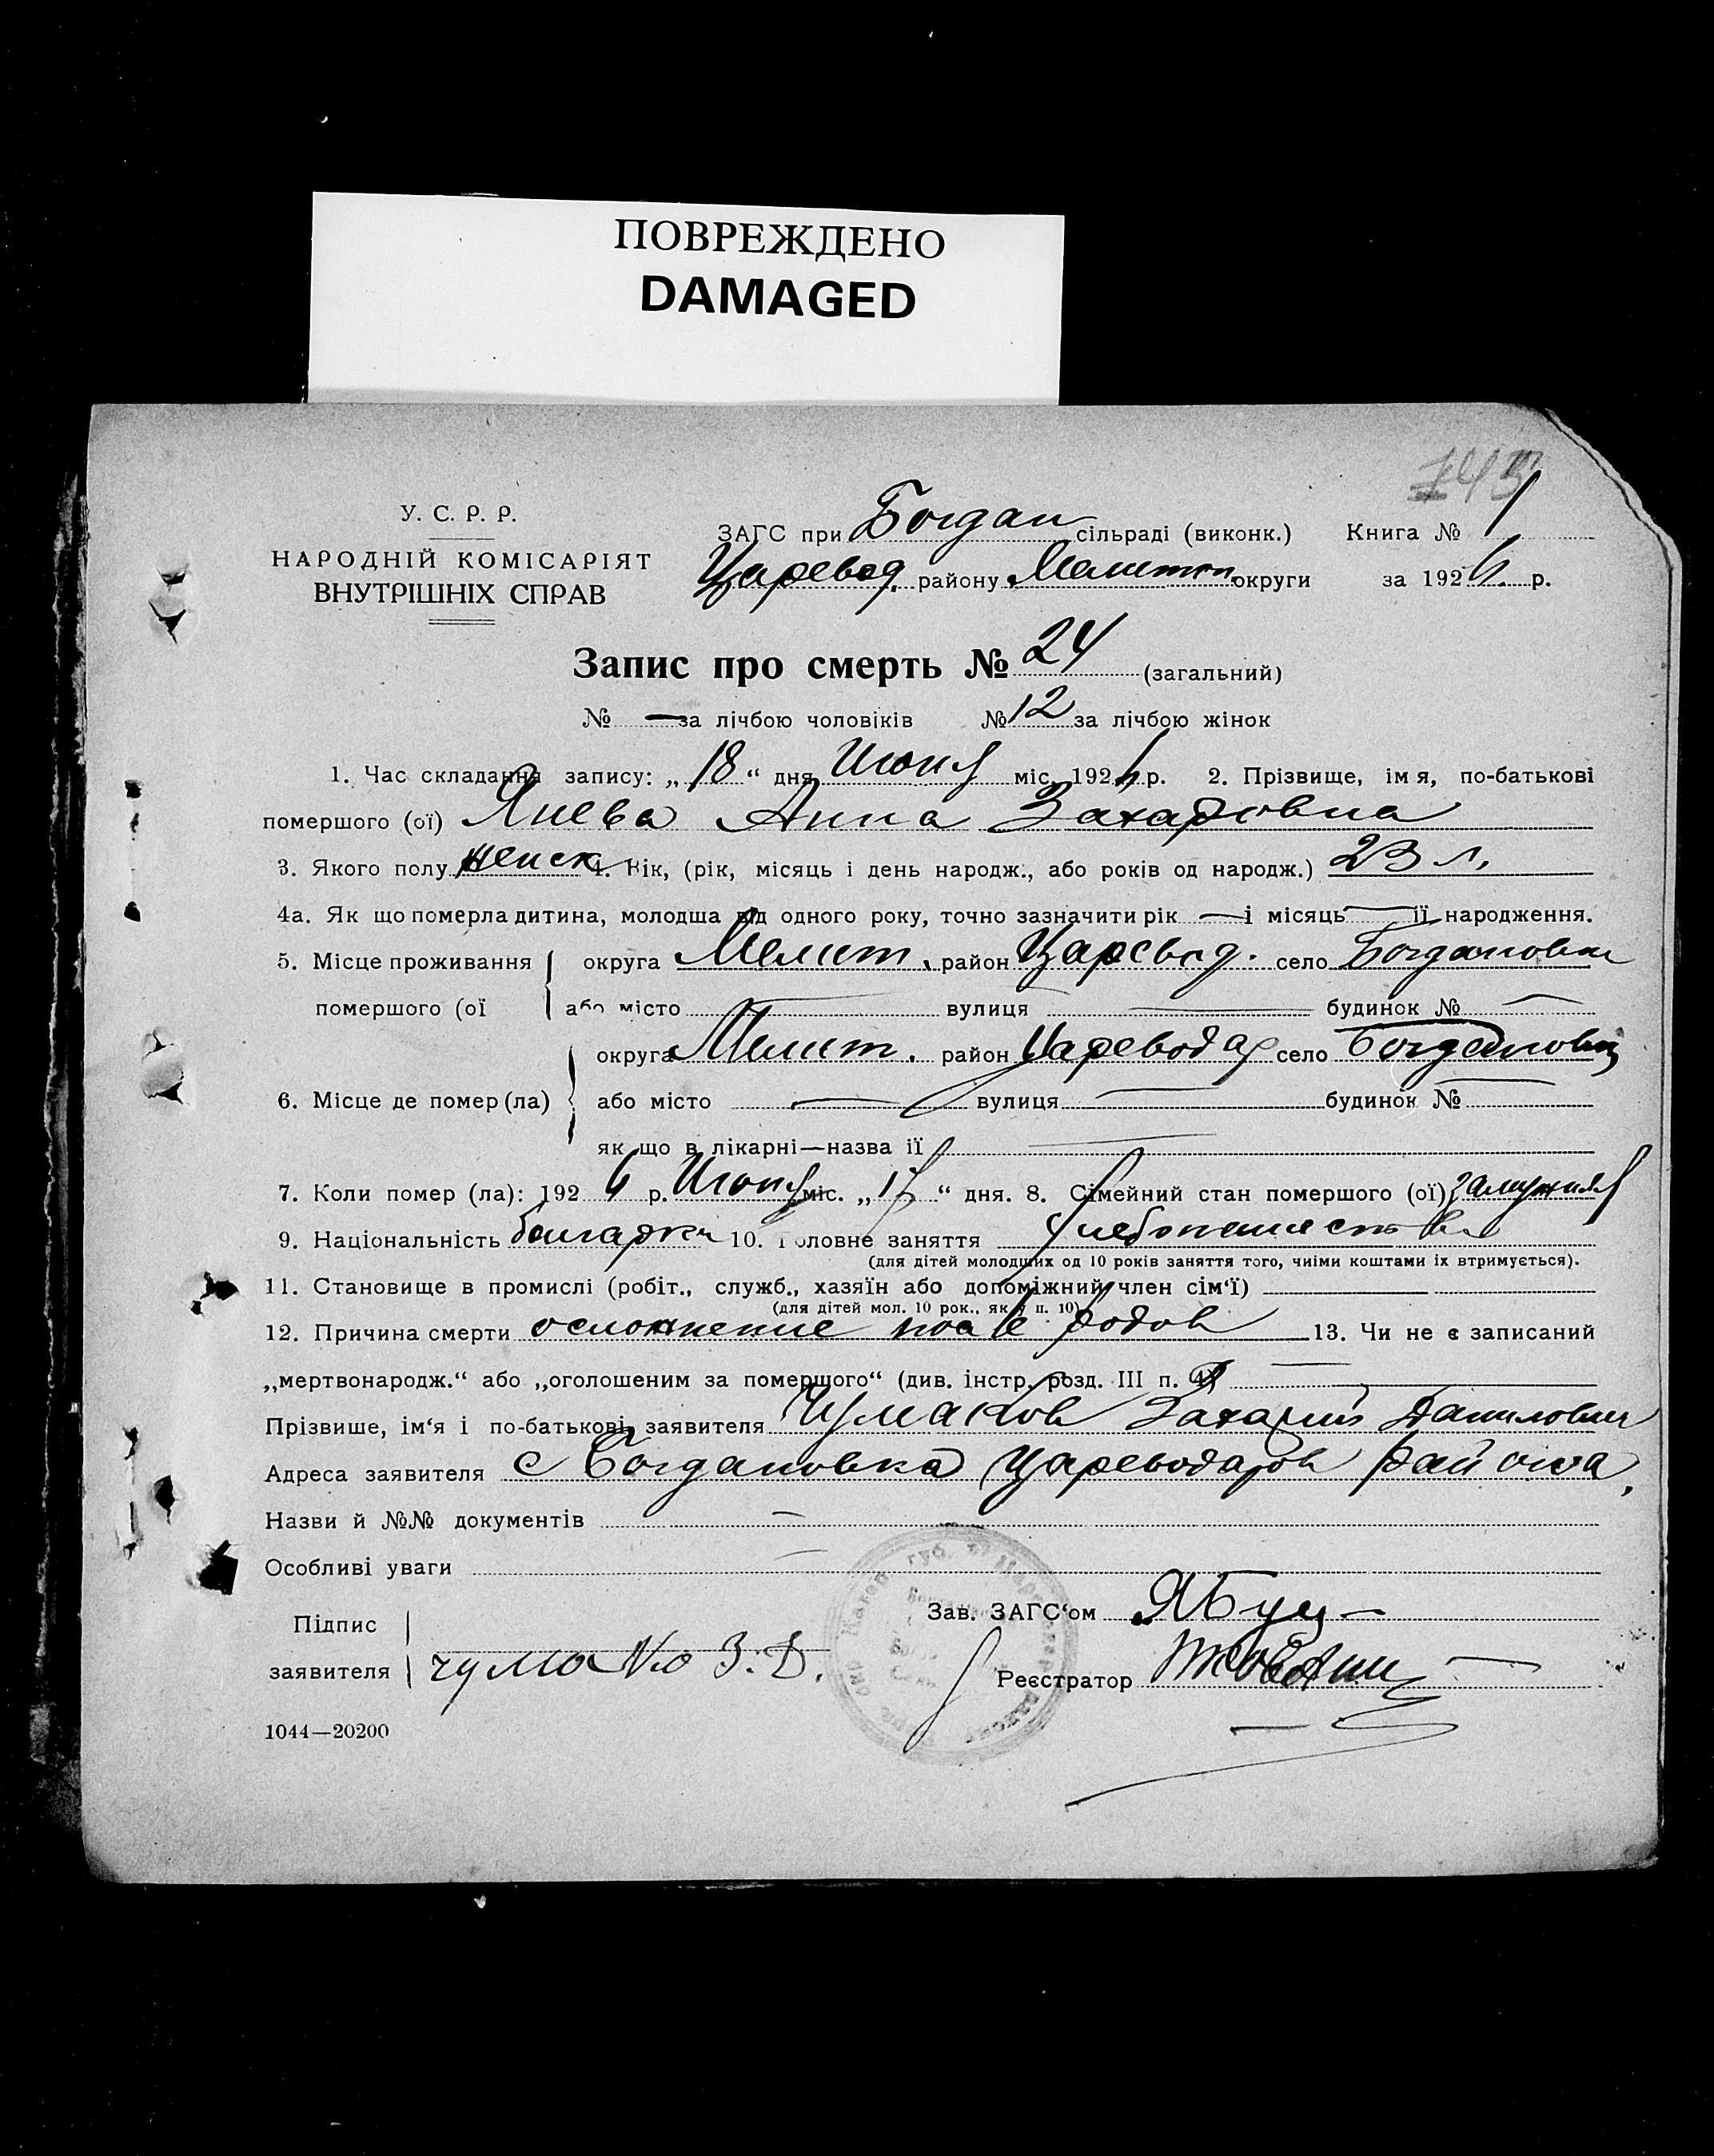 ПОВРЕЖДЕНО
DAMAGED
143
У. С. Р. Р.
НАРОДНІЙ КОМІСАРІЯТ
ВНУТРІШНІХ СПРАВ
ЗАГС при Богдан сільраді (виконк.) Книга № 1
Царевод. району Мелитоп округи за 1926 р.
Запис про смерть № 24 (загальний)
№ — за лічбою чоловіків № 12 за лічбою жінок
1. Час складання запису: „18“ дня Июня міс. 1926 р. 2. Прізвище, імя, по-батькові
помершого (ої) Янева Анна Захаровна
3. Якого полу женск 4. Вік, (рік, місяць і день народж., або років од народж.) 23 л.
4а. Як що померла дитина, молодша від одного року, точно зазначити рік — і місяць — її народження.
5. Місце проживання округа Мелит. район Царевод. село Богдановка
помершого (ої або місто — вулиця — будинок № —
округа Мелит. район Цареводар село Богдановка
6. Місце де помер (ла) або місто — вулиця — будинок № —
як що в лікарні—назва її —
7. Коли помер (ла): 1926 р. Июня міс. „17“ дня. 8. Сімейний стан помершого (ої) замужняя
9. Національність болгарка 10. Головне заняття хлебопашество
(для дітей молодщих од 10 років заняття того, чиїми коштами їх втримується).
11. Становище в промислі (робіт., служб., хазяїн або допоміжний член сім‘ї)
(для дітей мол. 10 рок., як у п. 10)
12. Причина смерти осложнение после родов 13. Чи не є записаний
„мертвонародж.“ або „оголошеним за помершого“ (див. інстр. розд. III п. 4) —
Прізвише, ім‘я і по-батькові заявителя Чумаков Захарий Данилович
Адреса заявителя с Богдановка Цареводаров района,
Назви й №№ документів —
Особливі уваги —
Підпис
заявителя чумако З. Д.
Зав. ЗАГС‘ом
Реєстратор
1044—20200